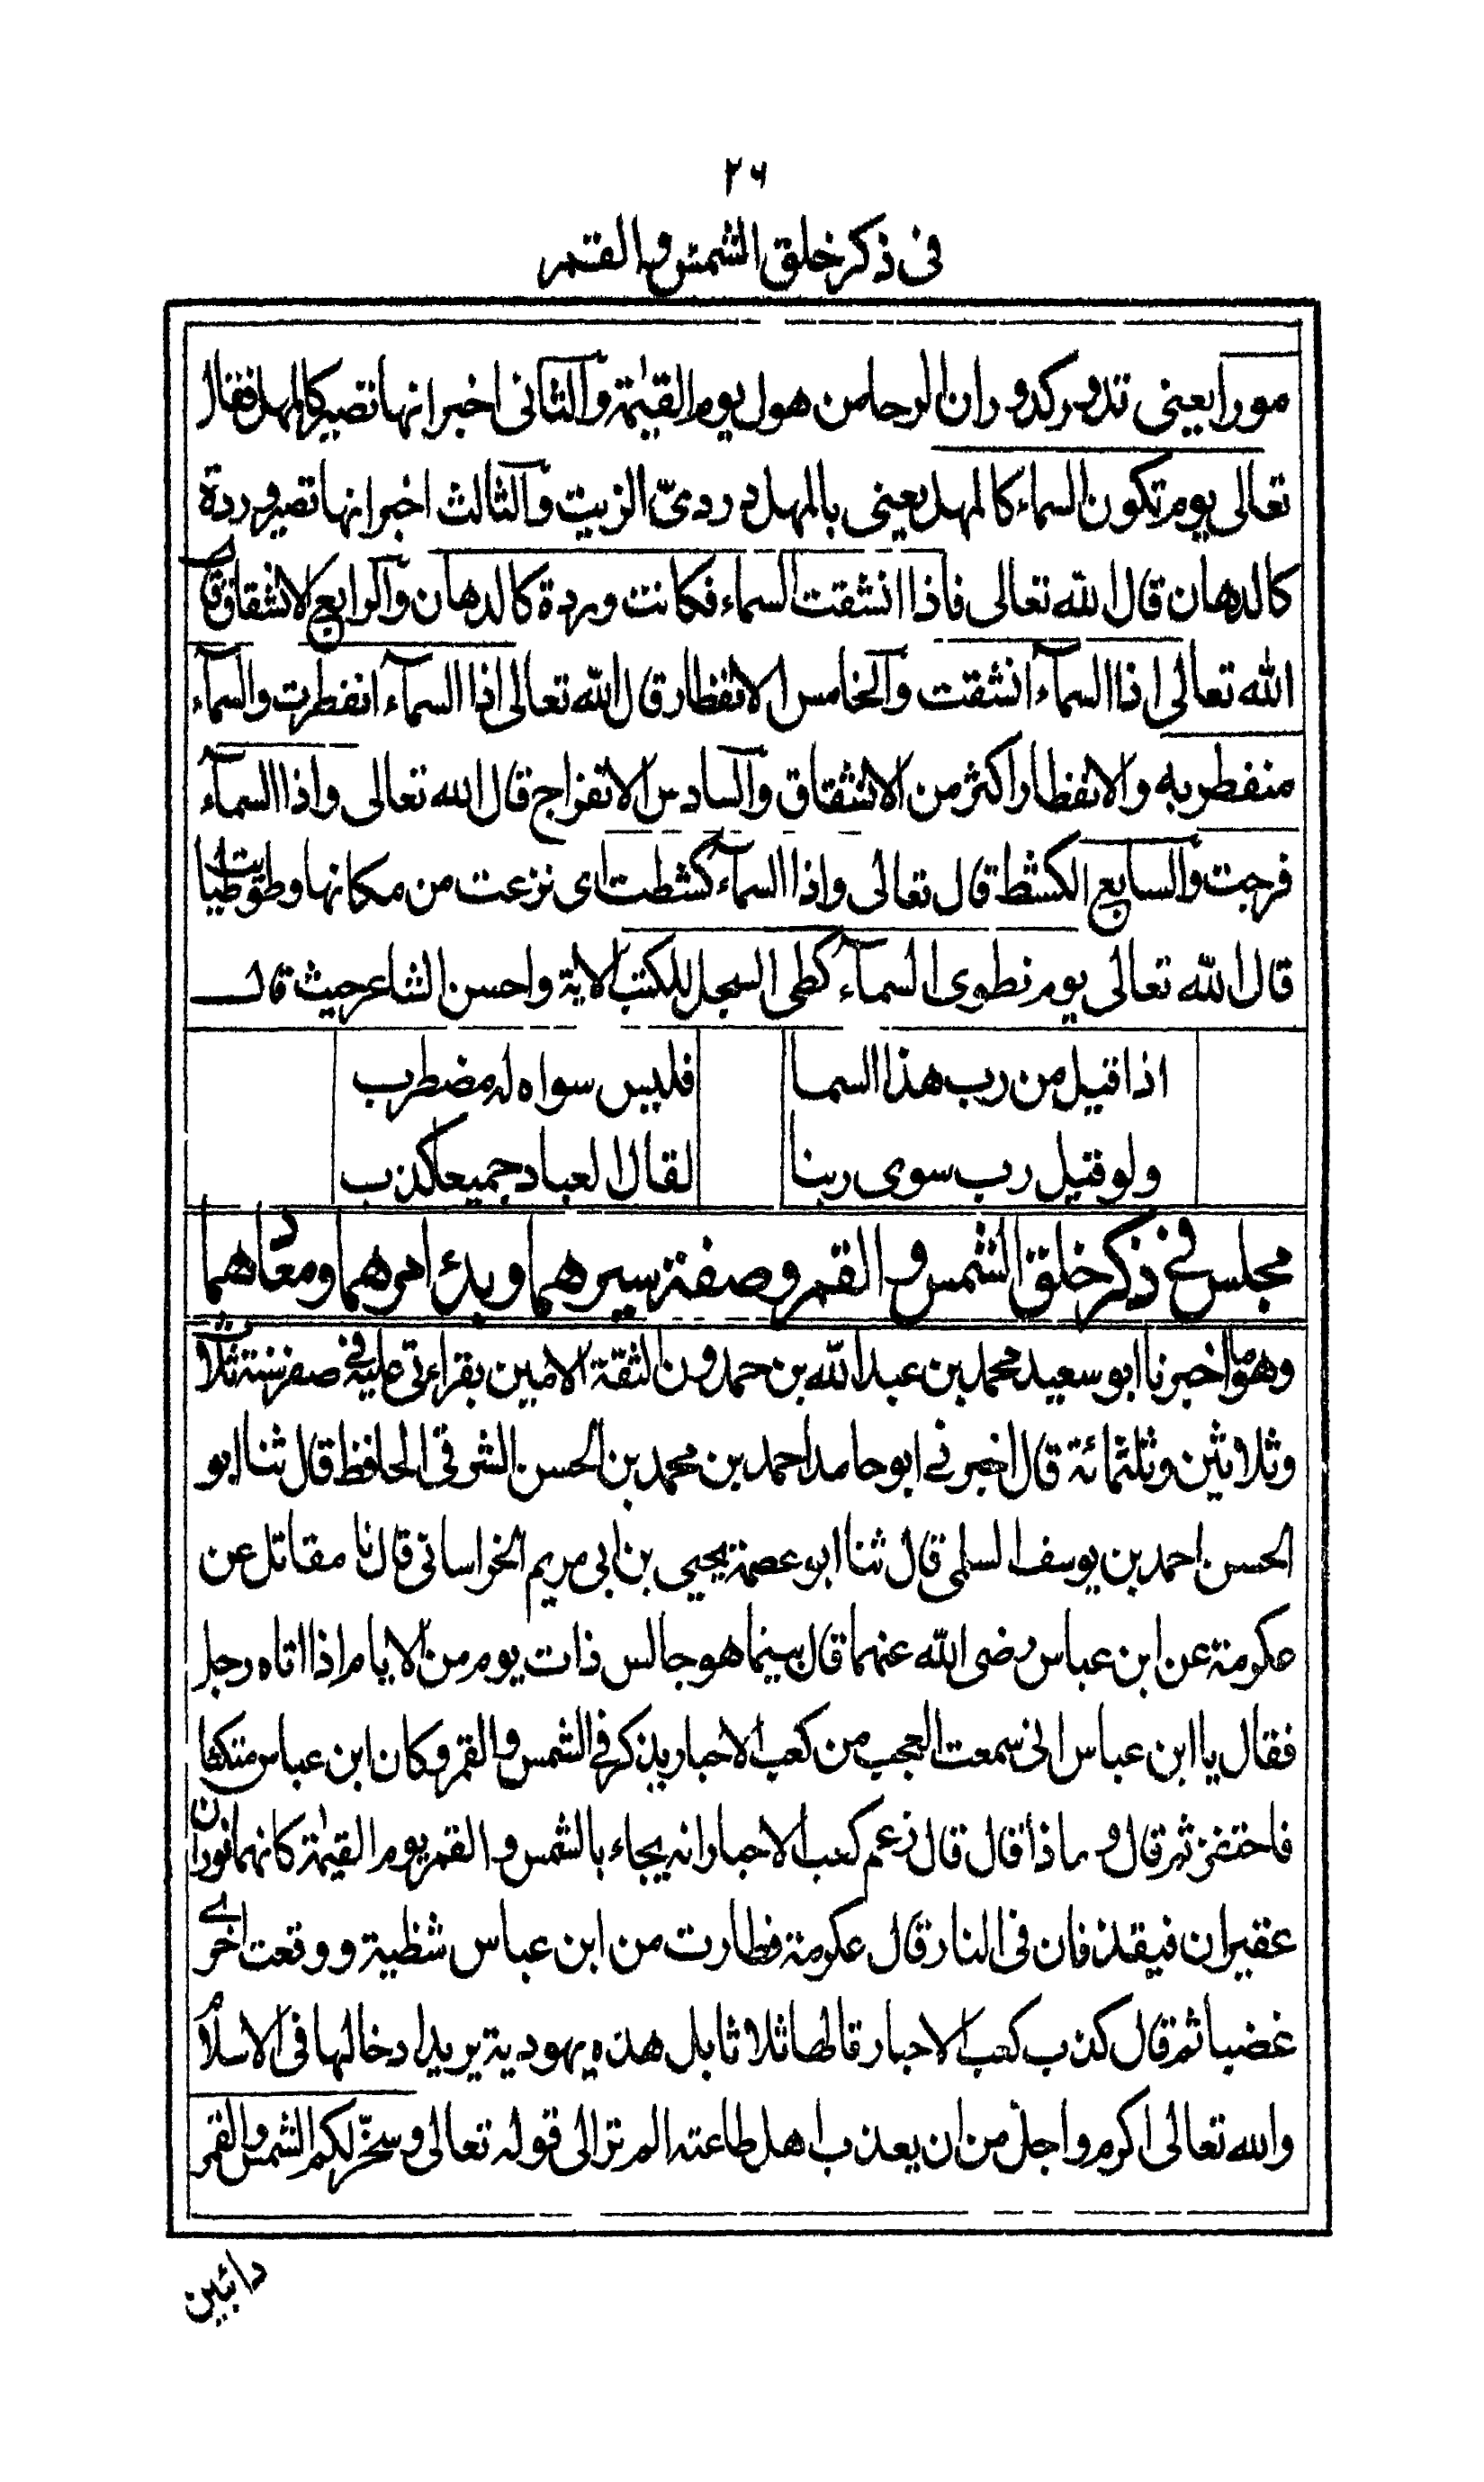 ٢٦
فى ذكر خلق الشمس والقمر
مورا يعنى تدور كدوران الرحا من هول يوم القيٰمة والثانى اخبر انها تصير كالمهل فقال
تعالى يوم تكون السماء كالمهل يعنى بالمهل دردىّ الزيت والثالث اخبر انها تصير وردة
كالدهان قال الله تعالى فاذا انشقت السماء فكانت وردة كالدهان والرابع الانشقاق قال
الله تعالى اذا السمآء انشقت والخامس الانفطار قال الله تعالى اذا السمآء انفطرت والسمآء
منفطر به والانفطار اكثر من الانشقاق والسادس الانفراج قال الله تعالى واذا السمآء
فرجت والسابع الكشط قال تعالى واذا السمآء كشطت اى نزعت من مكانها وطويت طيا
قال الله تعالى يوم نطوى السمآء كطى السجل للكتب الاية واحسن الشاعر حيث قال
اذا قيل من رب هذا السما فليس سواه له مضطرب
ولو قيل رب سوى ربنا لقال العباد جميعا كذب
مجلس فى ذكر خلق الشمس والقمر وصفة سيرهما وبدء امرهما ومعادهما
وهو ما اخبرنا ابو سعيد محمد بن عبد الله بن حمدون الثقة الامين بقراءتى عليه فى صفر سنة ثلاث
وثلاثين وثلثمائة قال اخبرنى ابو حامد احمد بن محمد بن الحسن الشرقى الحافظ قال ثنا ابو
الحسن احمد بن يوسف السلمى قال ثنا ابو عصمة يحيى بن ابى مريم الخراسانى قال نا مقاتل عن
عكرمة عن ابن عباس رضى الله عنهما قال بينما هو جالس ذات يوم من الايام اذا اتاه رجل
فقال يا ابن عباس انى سمعت العجب من كعب الاحبار يذكر فى الشمس والقمر وكان ابن عباس متكئا
فاحتفز ثم قال وما ذا قال قال زعم كعب الاحبار انه يجاء بالشمس والقمر يوم القيٰمة كانهما ثوران
عقيران فيقذفان فى النار قال عكرمة فطارت من ابن عباس شظية ووقعت اخرى
غضبا ثم قال كذب كعب الاحبار قالها ثلاثا بل هذه يهودية يريد ادخالها فى الاسلام
والله تعالى اكرم واجلّ من ان يعذب اهل طاعته الم تر الى قوله تعالى وسخّر لكم الشمس والقمر
دائبين